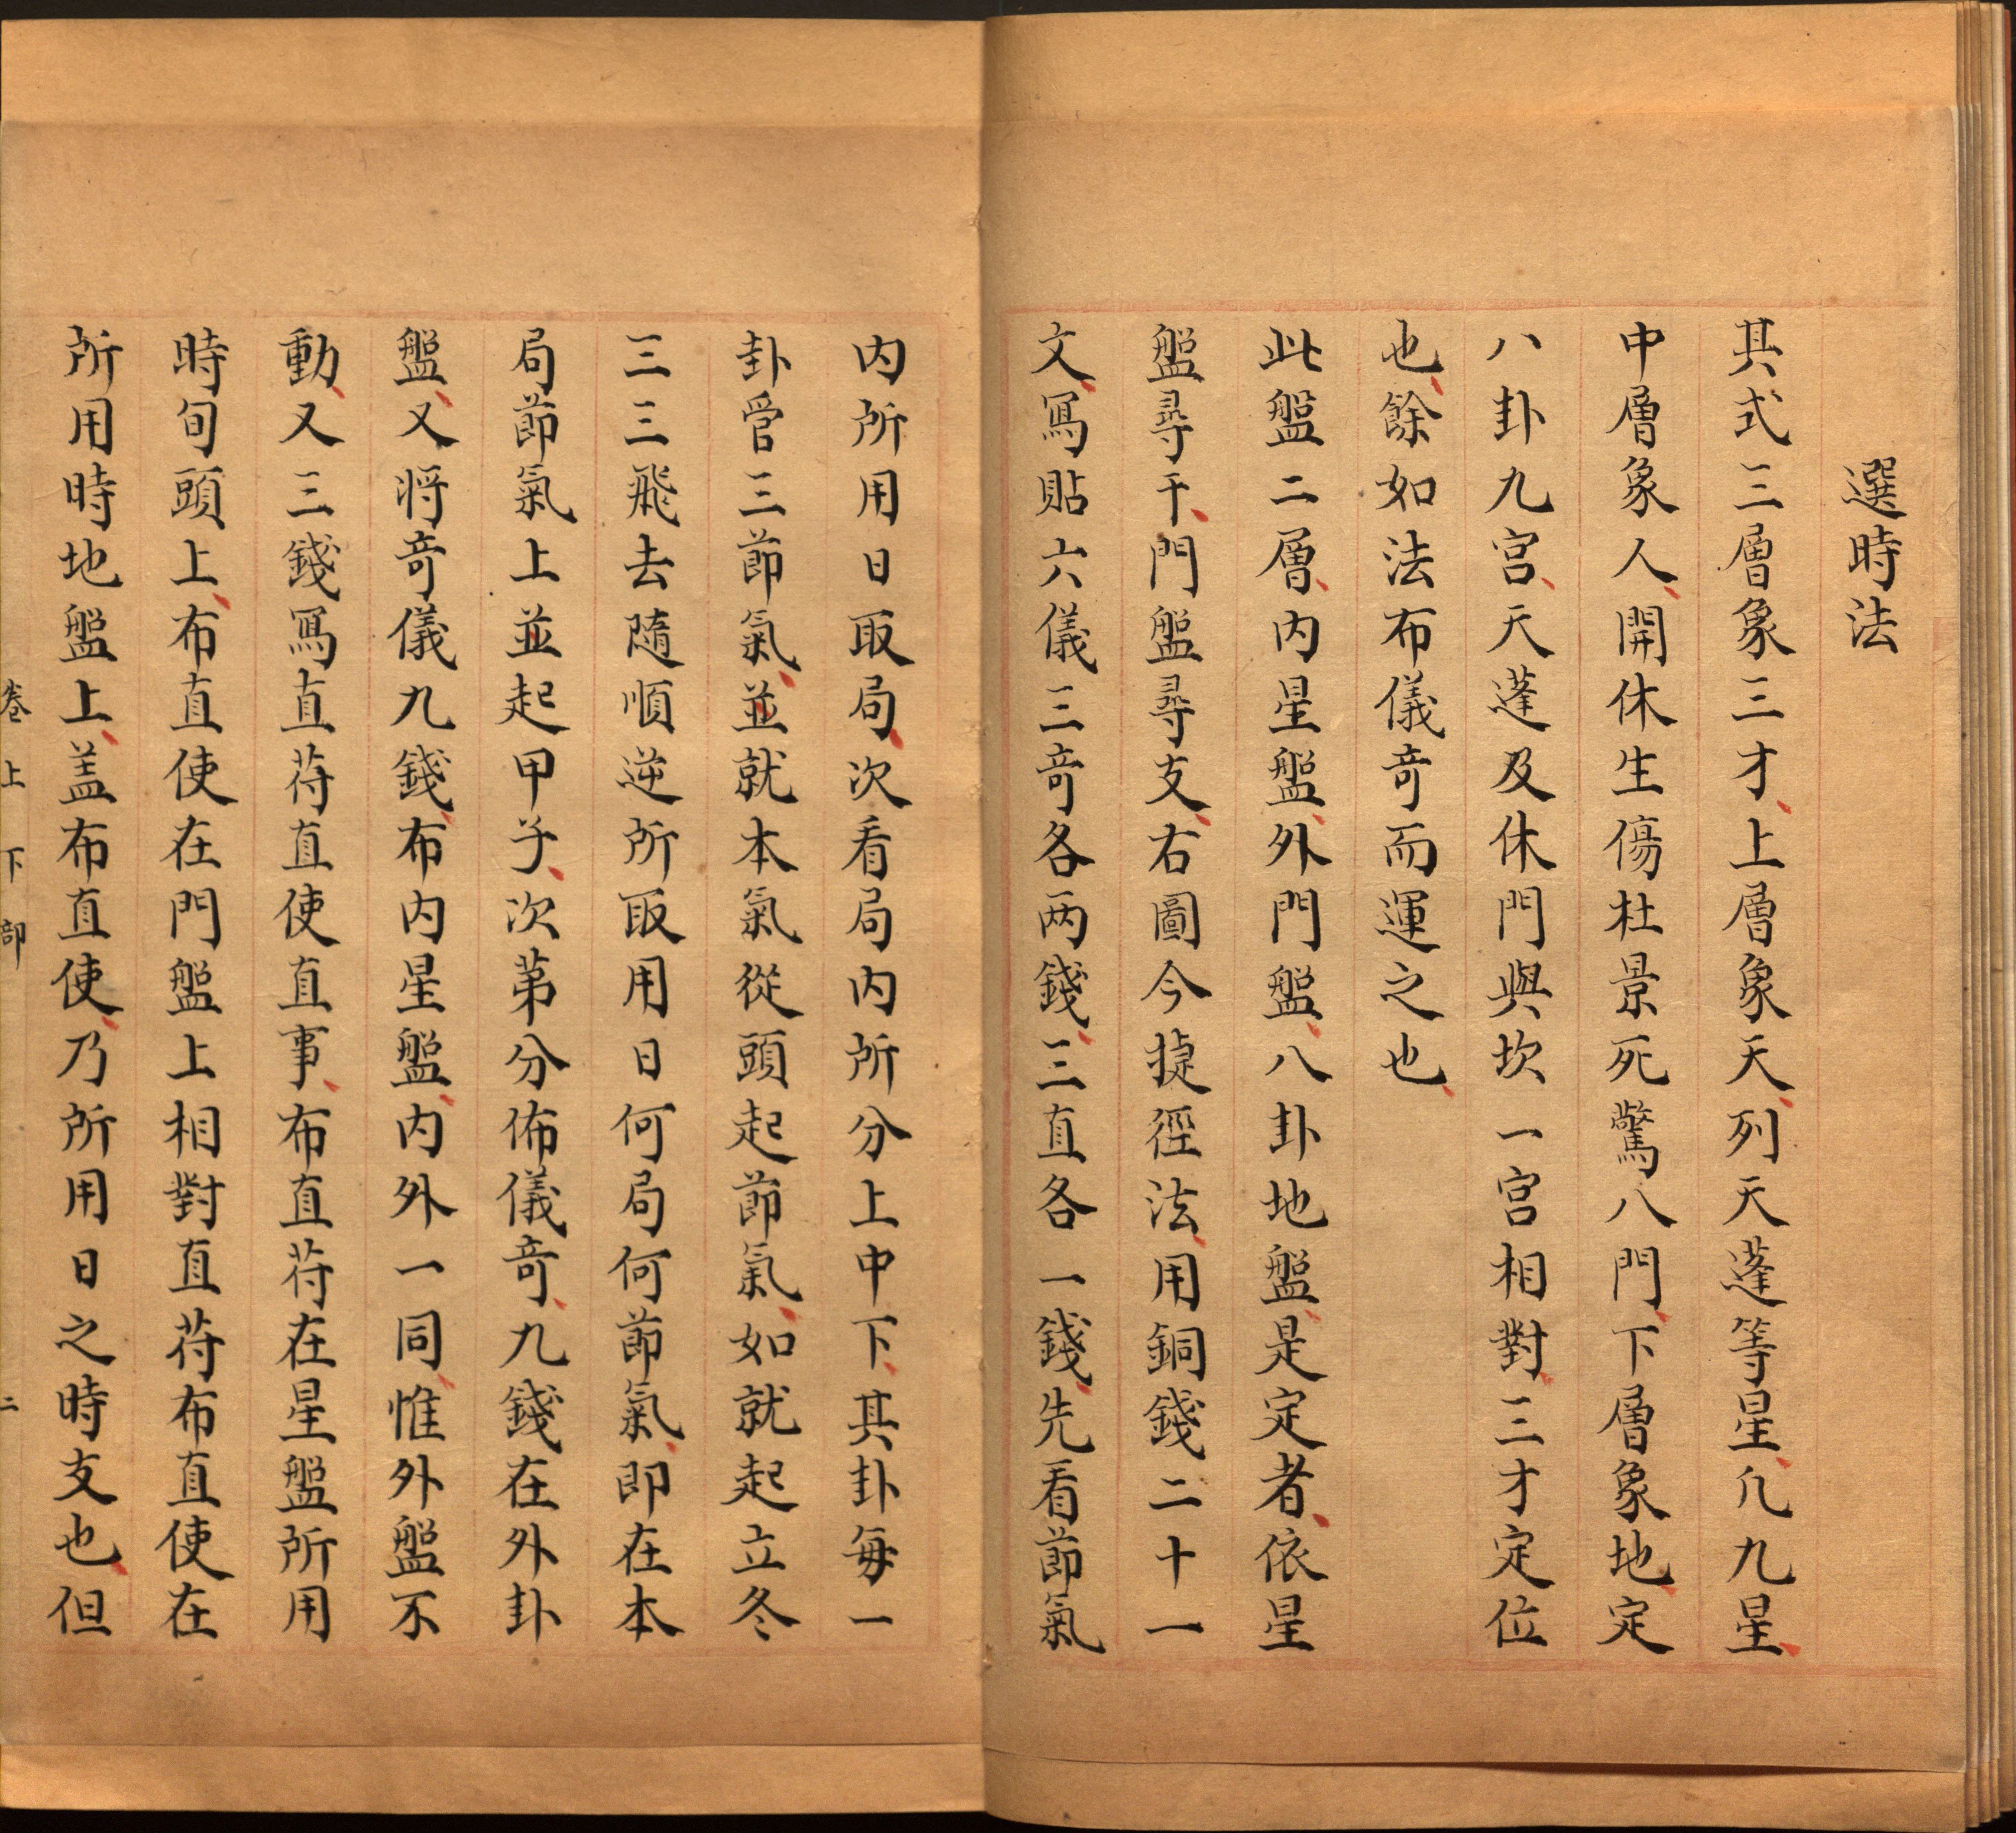 選時法
其式三層象三才上層象天列天蓬等星凢九星
中層象人開休生傷杜景死驚八門下層象地定
八卦九宮天蓬及休門與坎一宮相對三才定位
也餘如法布儀奇而運之也
此盤二層内星盤外門盤八卦地盤是定者依星
盤尋干門盤尋支右圖今㨗徑法用銅錢二十一
文寫貼六儀三奇各两錢三直各一錢先看節氣
内所用日取局次看局内所分上中下其卦每一
卦管三節氣並就本氣從頭起節氣如就起立冬
三三飛去隨順逆所取用日何局何節氣即在本
局節氣上並起甲子次第分佈儀奇九錢在外卦
盤又将奇儀九錢布内星盤内外一同惟外盤不
動又三錢寫直苻直使直事布直苻在星盤所用
時旬頭上布直使在門盤上相對直苻布直使在
所用時地盤上盖布直使乃所用日之時支也但
卷上下部 二